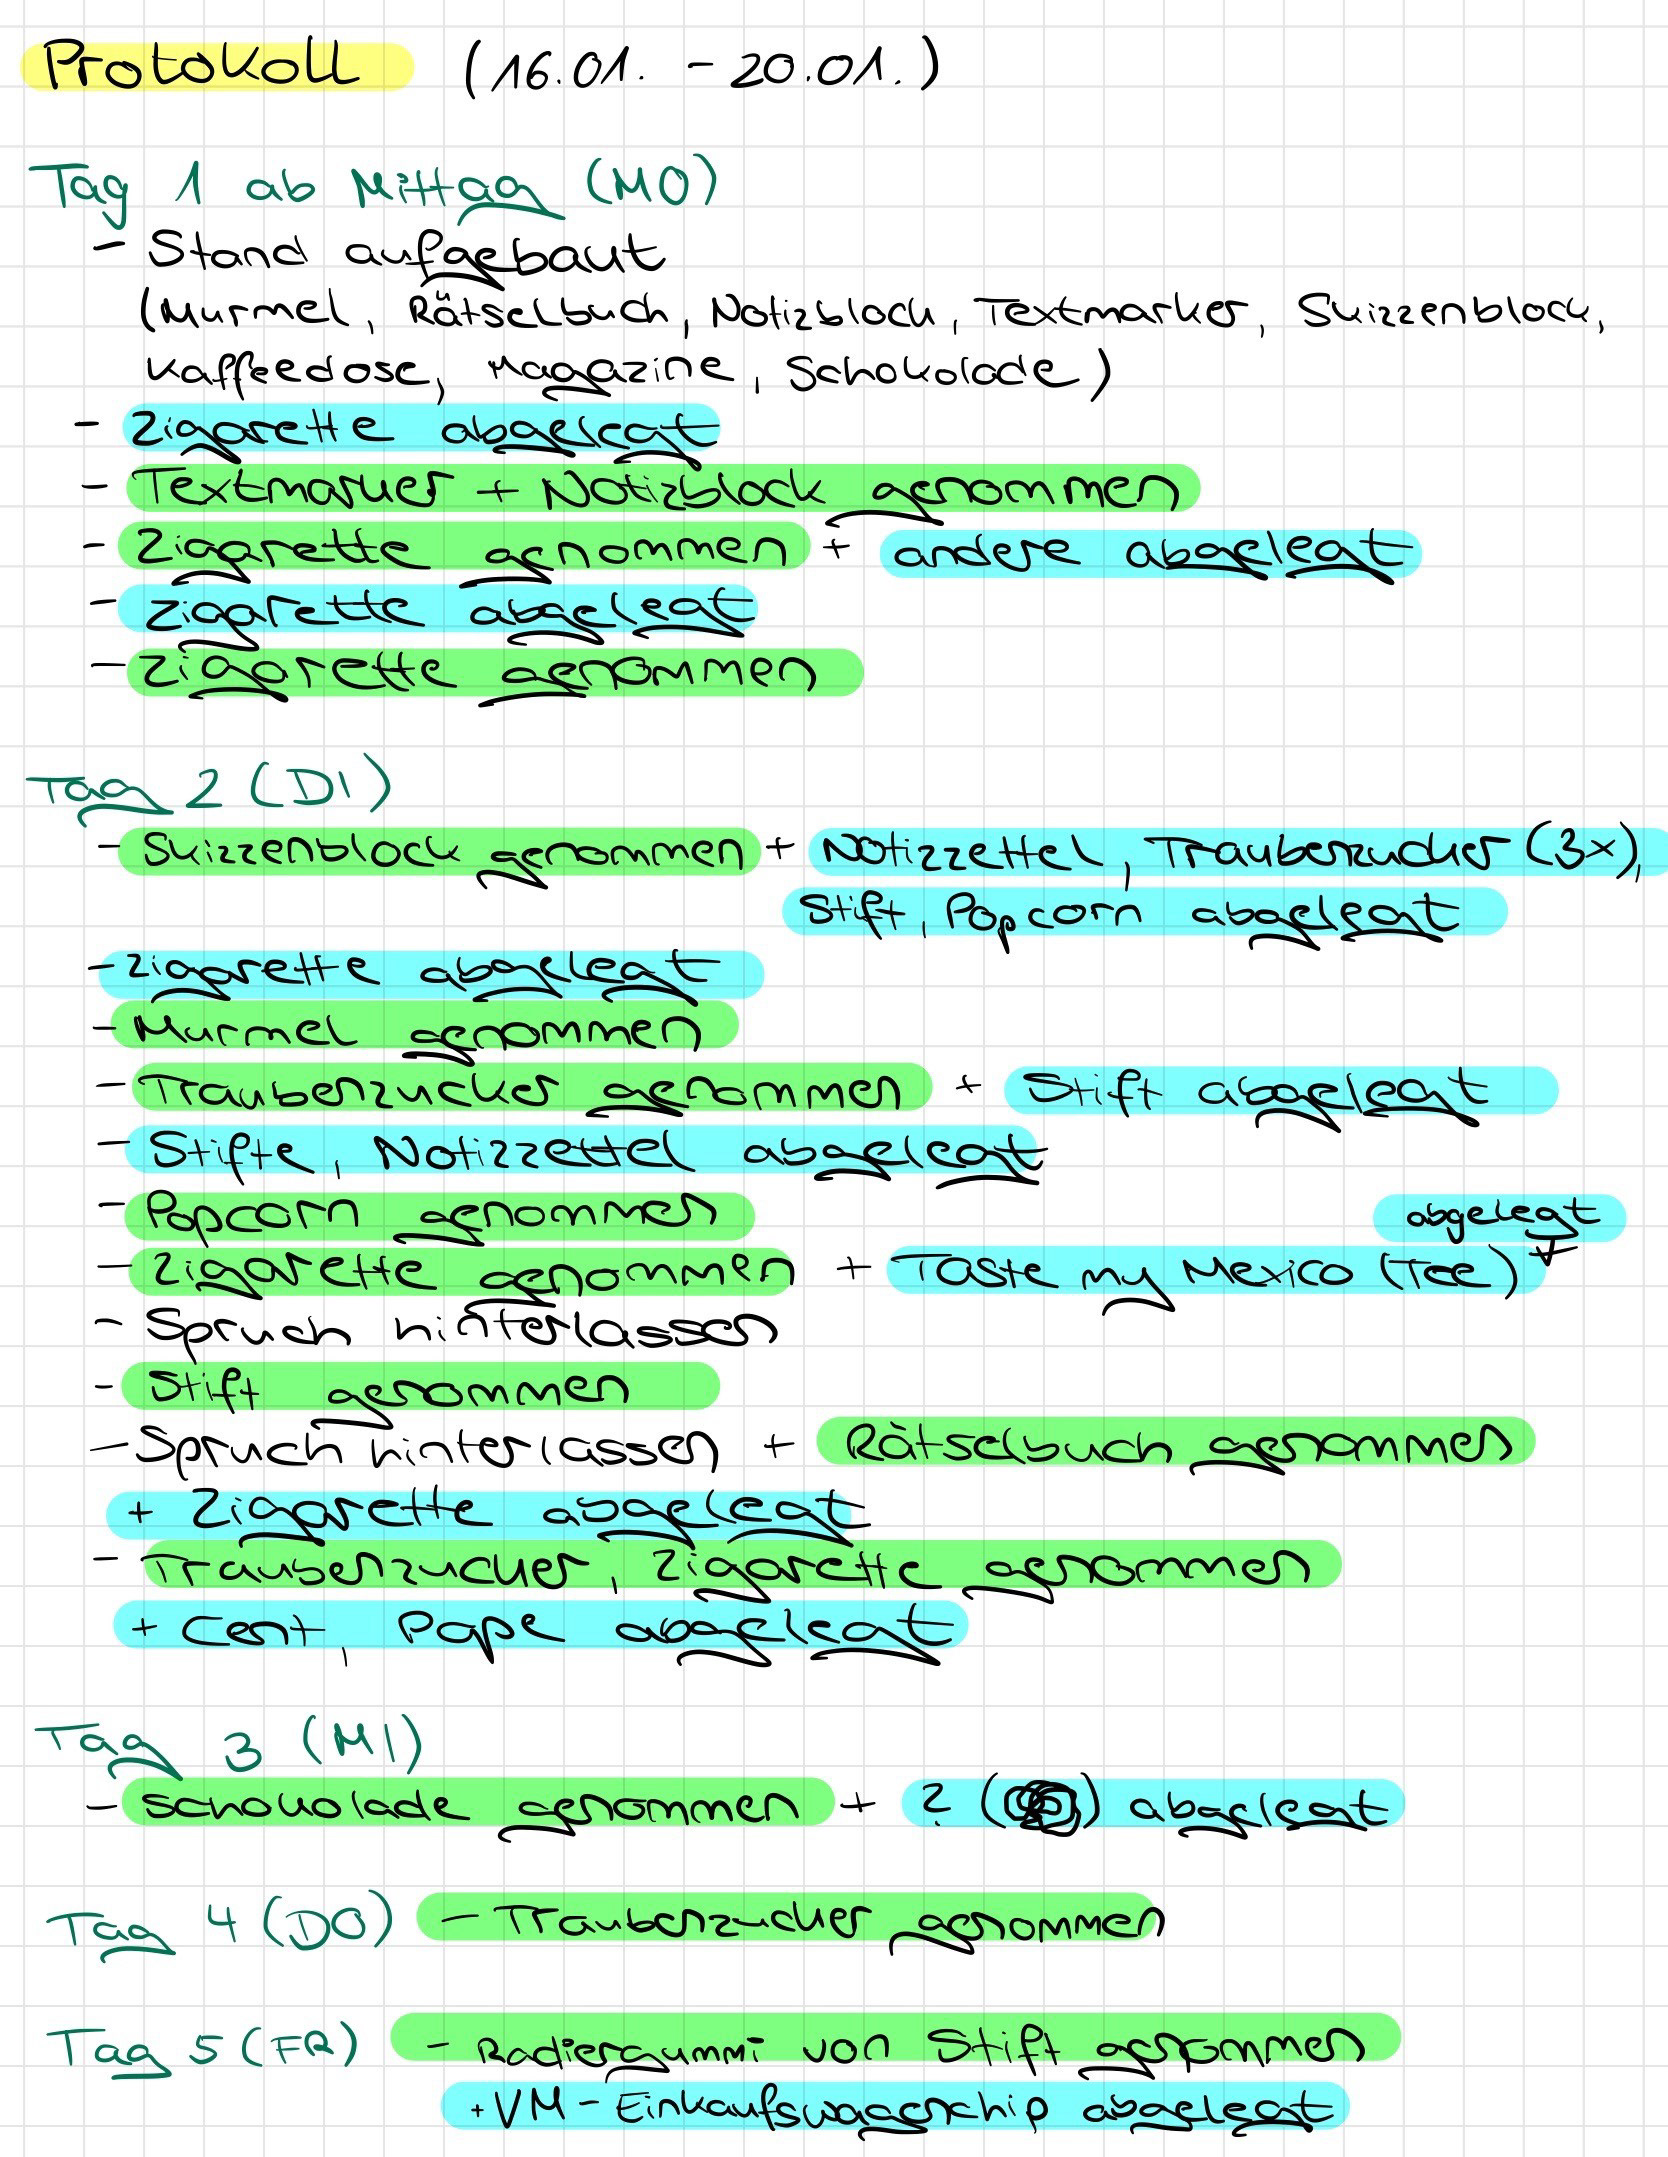 Protokoll (16.01. - 20.01.)
Tag 1 ab Mittag (MO)
- Stand aufgebaut
(Murmel, Rätselbuch, Notizblock, Textmarker, Skizzenblock,
Kaffeedose, Magazine, Schokolade)
- Zigarette abgelegt
- Textmarker + Notizblock genommen
- Zigarette genommen + andere abgelegt
- Zigarette abgelegt
- Zigarette genommen
Tag 2 (DI)
- Skizzenblock genommen + Notizzettel, Traubenzucker (3x),
Stift, Popcorn abgelegt
- Zigarette abgelegt
- Murmel genommen
- Traubenzucker genommen + Stift abgelegt
- Stifte, Notizzettel abgelegt
- Popcorn genommen
abgelegt
- Zigarette genommen + Taste my Mexico (Tee)
- Spruch hinterlassen
- Stift genommen
- Spruch hinterlassen + Rätselbuch genommen
+ Zigarette abgelegt
- Traubenzucker, Zigarette genommen
+ Cent, Pape abgelegt
Tag 3 (MI)
- Schokolade genommen + ? () abgelegt
Tag 4 (DO) - Traubenzucker genommen
Tag 5 (FR) - Radiergummi von Stift genommen
+ VM - Einkaufswagenchip abgelegt